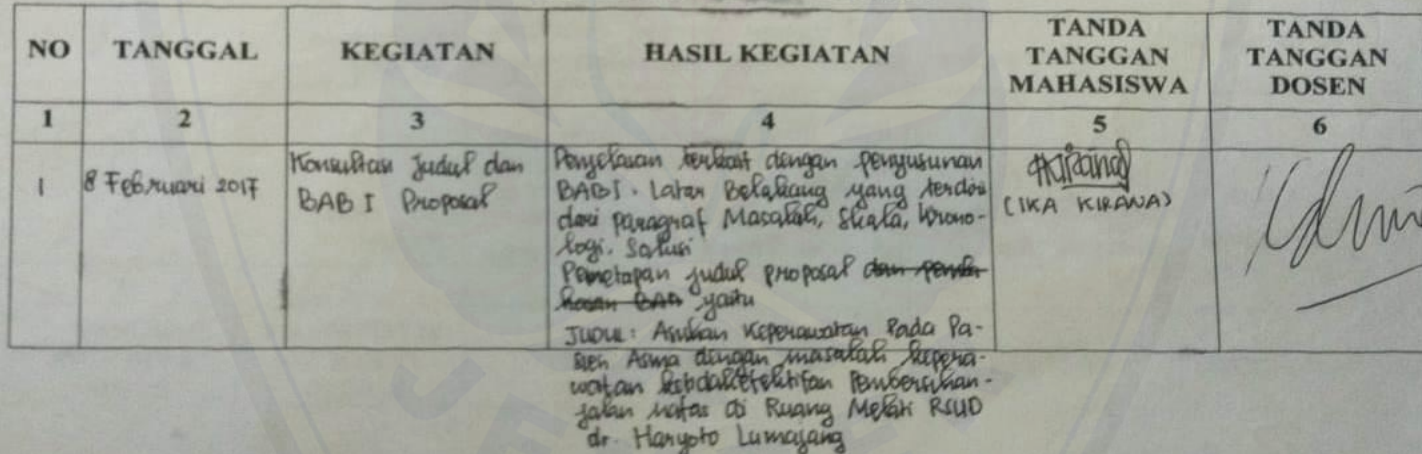 NO TANGGAL KEGIATAN HASIL KEGIATAN TANDA TANGGAN MAHASISWA TANDA TANGGAN DOSEN
1 2 3 4 5 6
1 8 Februari 2017
Konsultasi Judul dan
BAB I Proposal
Penjelasan terkait dengan penyusunan
BAB I. Latar Belakang yang terdiri
dari paragraf Masalah, Skala, Krono-
logi. Solusi
Penetapan judul proposal dan pemba-
hasan BAB yaitu
JUDUL: Asuhan Keperawatan Pada Pa-
sien Asma dengan masalah kepera-
watan ketidakefektifan Pembersihan-
jalan nafas di Ruang Melati RSUD
dr. Haryoto Lumajang
(IKA KIRANA)
JEMBER